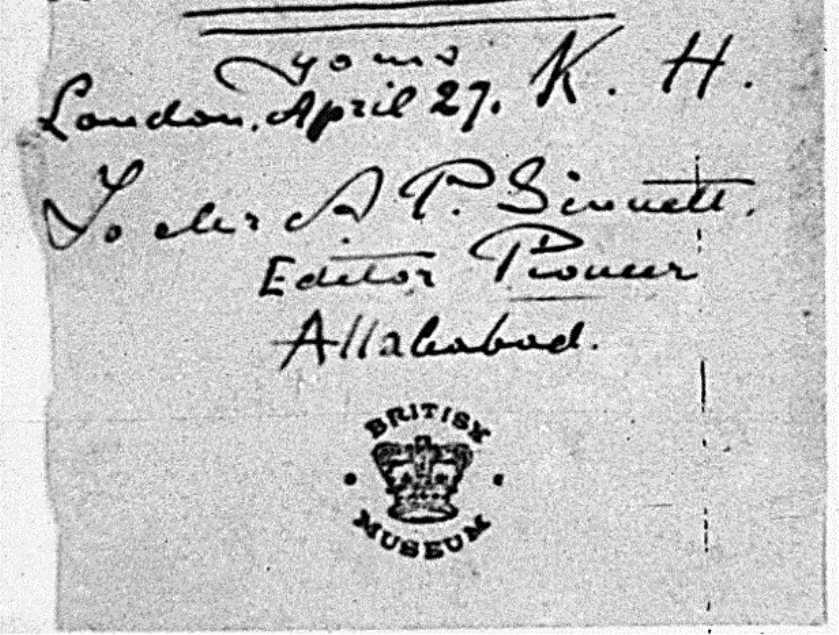 yours K. H.
London, April 27.
To Mr A. P. Sinnett.
Editor Pioneer
Allahabad.
BRITISH
MUSEUM